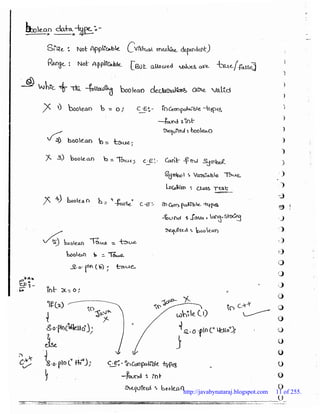 boolean data-type:-
Size : Not Applicable (virtual machine dependent)
Range : Not Applicable [But allowed values are true/false]
Which of the following boolean declarations are valid
X 1) boolean b = 0; C.E:- incompatible types
found : int
required : boolean
✓ 2) boolean b = true;
X 3) boolean b = True; C.E:- Can't find symbol
symbol : variable True
location : class Test
X 4) boolean b = "false" C.E:- incompatible types
found : java.lang.String
required : boolean
✓ 5) boolean True = true
boolean b = True;
S.o.pln(b); true
Ex:-
int x = 0;
if(x) in Java X
{
S.o.pln("Hello");
}
else
{
C++ S.o.pln("Hi");
}
in Java X in C++
while(1)
{
S.o.pln("Hello");
}
C.E:- incompatible types
found : int
required : boolean
http://javabynataraj.blogspot.com 11 of 255.